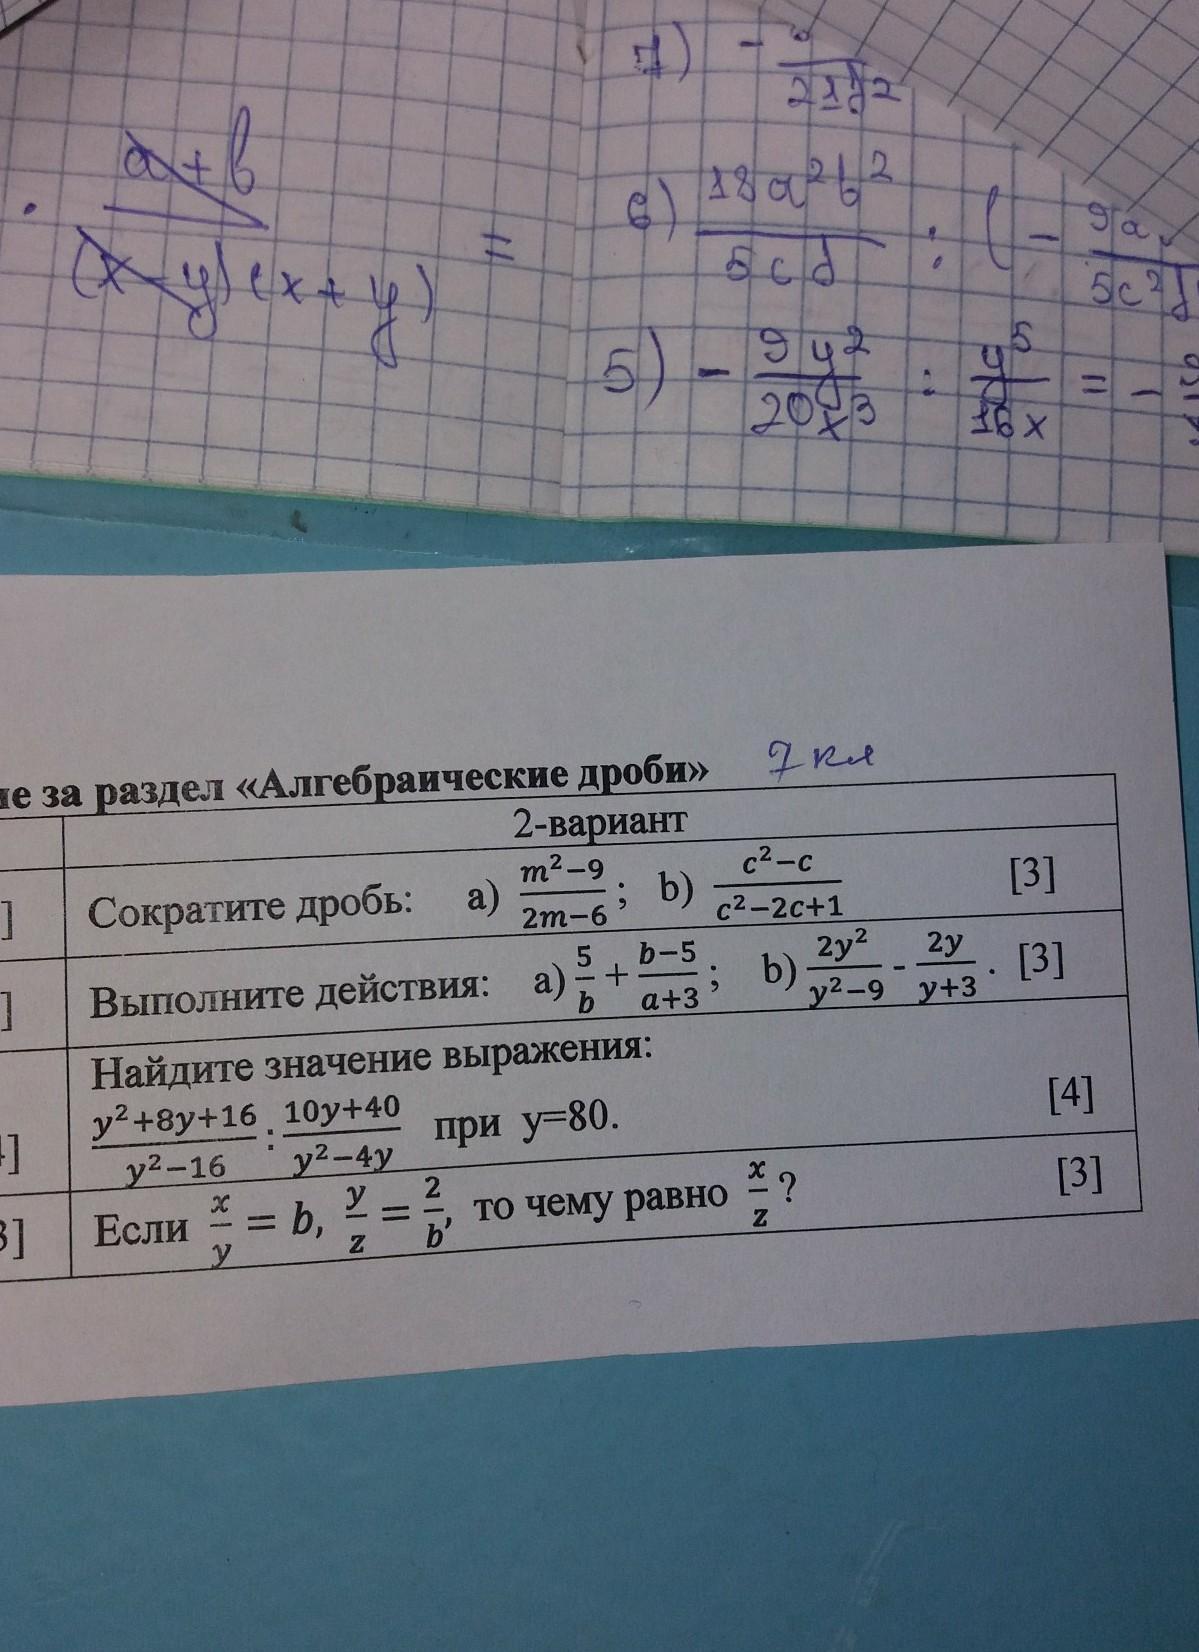 7) - 21y²
a+b
· ――― =
(x-y)(x+y)
6) 18a²b² / 5cd : (- 9a / 5c²d
5) - 9y² / 20x³ : y⁵ / 16x = -
за раздел «Алгебраические дроби» 7 кл
2-вариант
] Сократите дробь: a) m²−9 / 2m−6 ; b) c²−c / c²−2c+1 [3]
] Выполните действия: a) 5/b + b−5 / a+3 ; b) 2y² / y²−9 - 2y / y+3 . [3]
Найдите значение выражения:
] y²+8y+16 / y²−16 : 10y+40 / y²−4y при y=80. [4]
3] Если x/y = b, y/z = 2/b, то чему равно x/z ? [3]